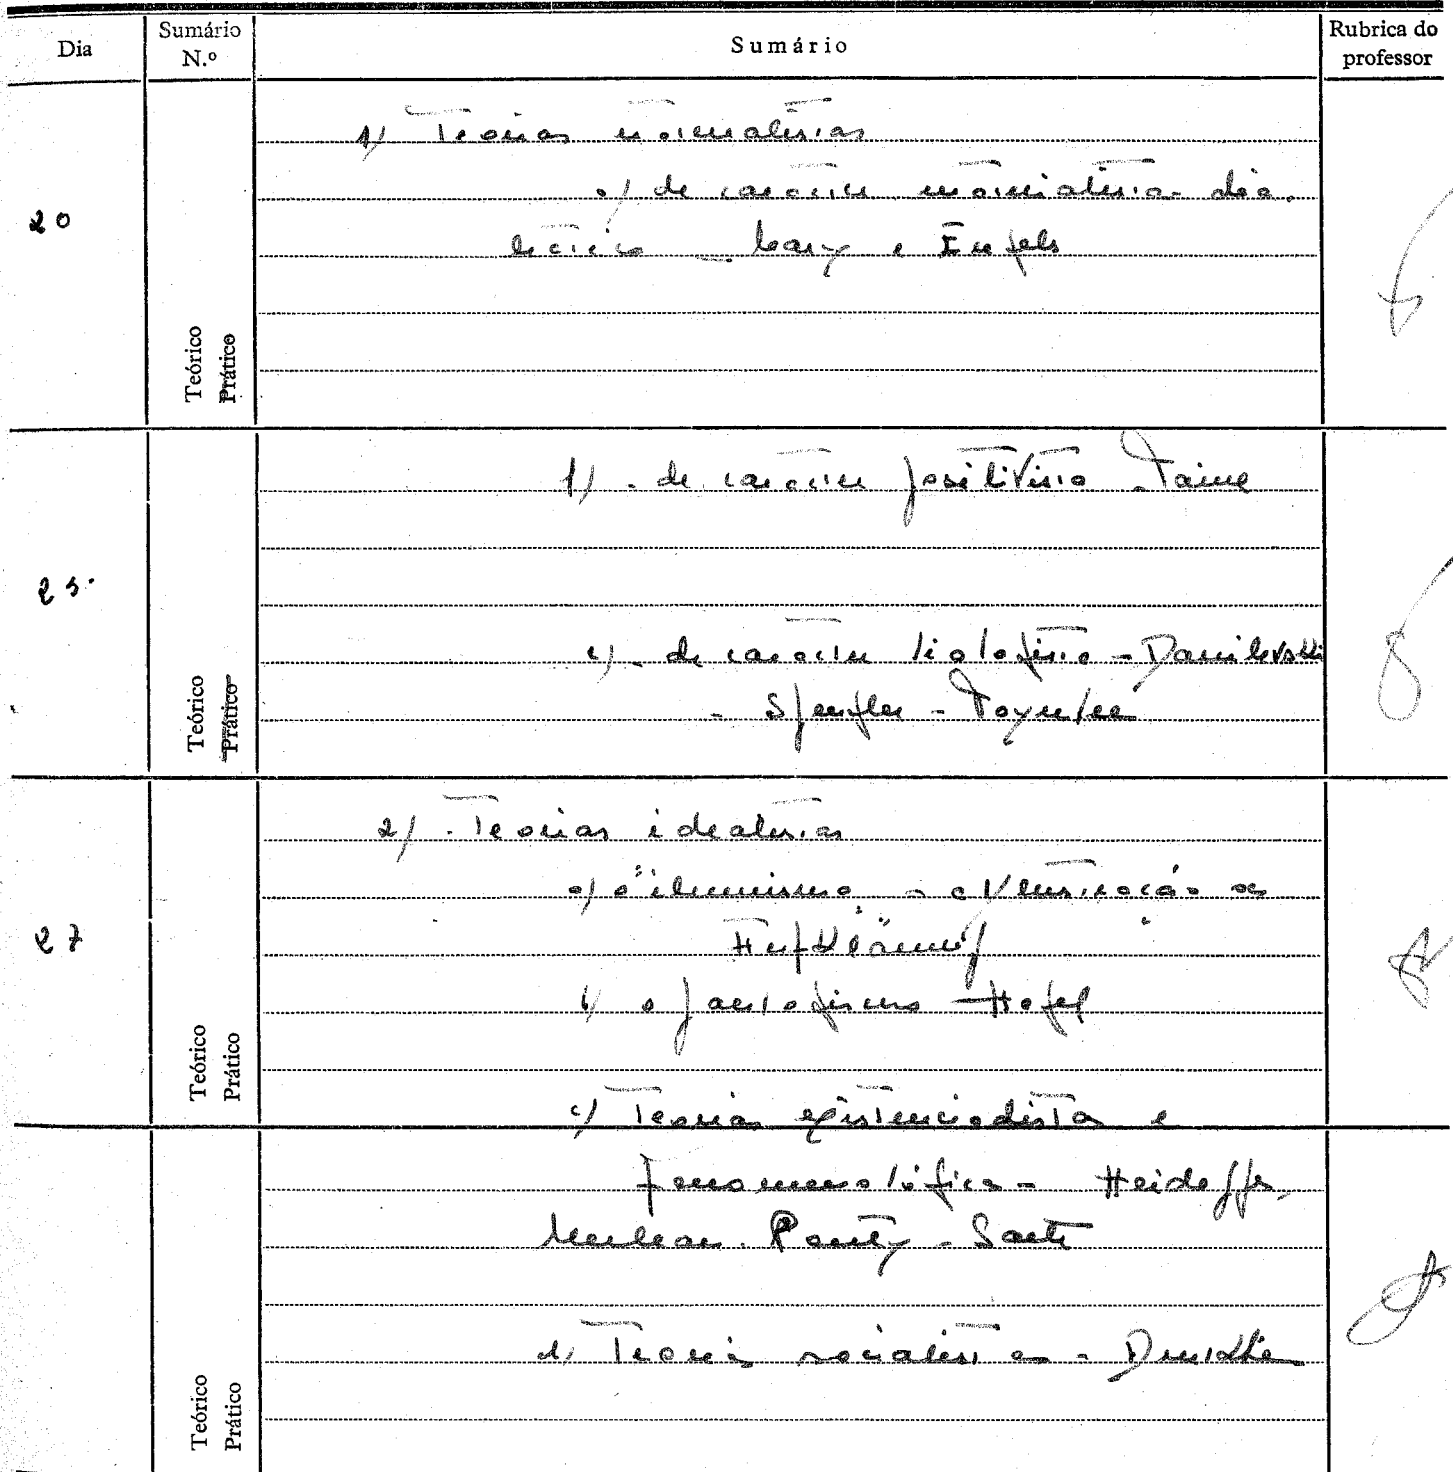 Dia
Sumário N.º
Sumário
Rubrica do professor
20
Teórico
Prático
1) Teorias materialistas
a) de carácter materialista dia-
léctico - Marx e Engels
25
Teórico
Prático
b) - de carácter positivista - Taine
c) - de carácter biológico - Danilevski
- Spengler - Toynbee
27
Teórico
Prático
2) - Teorias idealistas
a) o "iluminismo -
"
b) o Hegel
c) Teorias existencialistas e
Teórico
Prático
fenomenológicas - Heidegger,
Merleau-Ponty - Sartre
d) Teoria socialista -